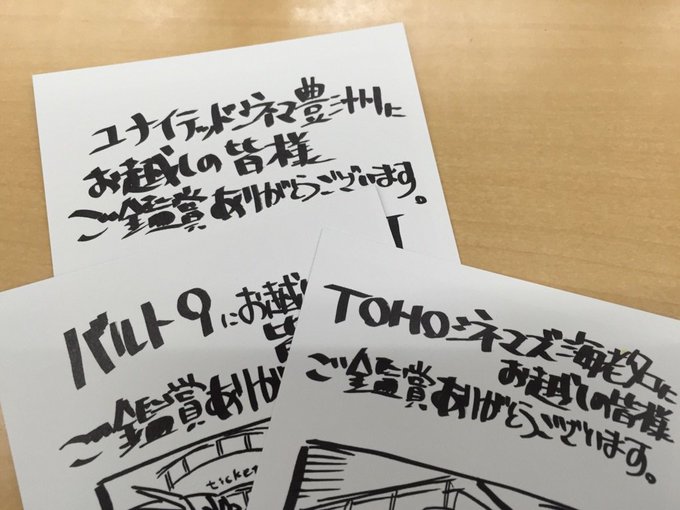 ユナイテッドシネマ豊洲に
お越しの皆様
ご鑑賞ありがとうございます。
バルト9にお越し
皆
ご鑑賞ありが
ticket
TOHOシネマズ海老名に
お越しの皆様
ご鑑賞ありがとうございます。